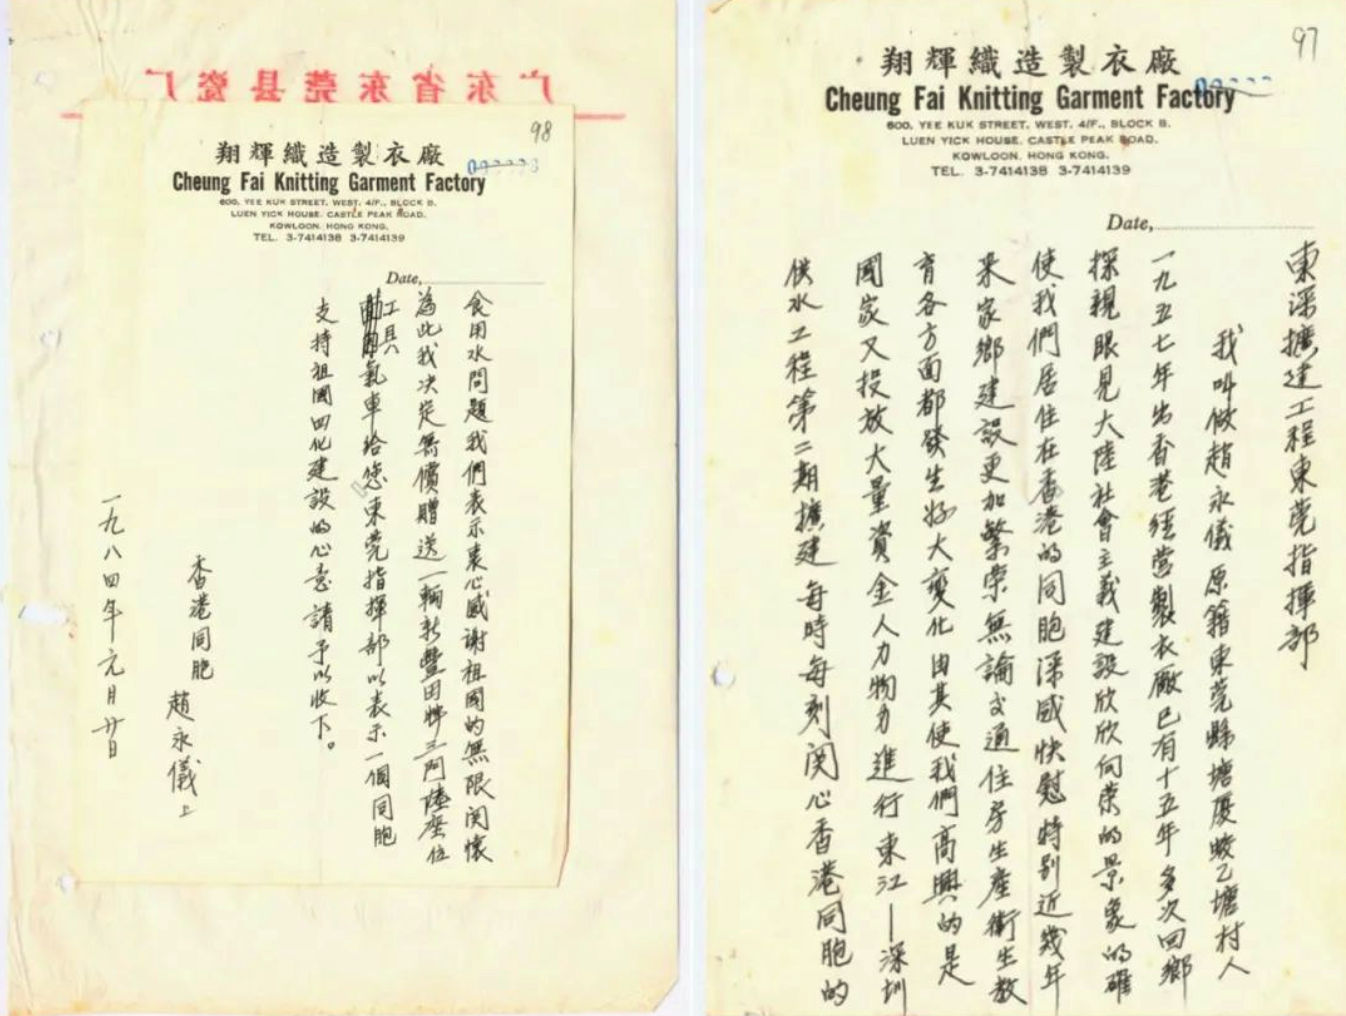 97
翔輝織造製衣廠
Cheung Fai Knitting Garment Factory
600, YEE KUK STREET, WEST, 4/F., BLOCK B.
LUEN YICK HOUSE, CASTLE PEAK ROAD.
KOWLOON, HONG KONG.
TEL. 3-7414138 3-7414139
Date,
東深擴建工程東莞指揮部
我叫做趙永儀原籍東莞縣塘厦蛟乙塘村人
一九五七年出香港經營製衣廠已有十五年多次回鄉
探親眼見大陸社會主義建設欣欣向荣的景象的確
使我們居住在香港的同胞深感快慰特别近幾年
来家鄉建設更加繁荣無論交通住房生産衛生教
育各方面都發生好大變化由其使我們高興的是
國家又投放大量資金人力物力進行東江—深圳
供水工程第二期擴建每時每刻関心香港同胞的
广东省东莞县瓷厂
98
翔輝織造製衣廠
Cheung Fai Knitting Garment Factory
600, YEE KUK STREET, WEST, 4/F., BLOCK B.
LUEN YICK HOUSE, CASTLE PEAK ROAD.
KOWLOON, HONG KONG.
TEL. 3-7414138 3-7414139
Date,
食用水問題我們表示衷心感謝祖國的無限関懷
為此我决定無價贈送一輛新豐田牌三門陸座位
工具氣車給您東莞指揮部以表示一個同胞
支持祖國四化建設的心意請予以收下。
香港同胞
趙永儀上
一九八四年元月廿日